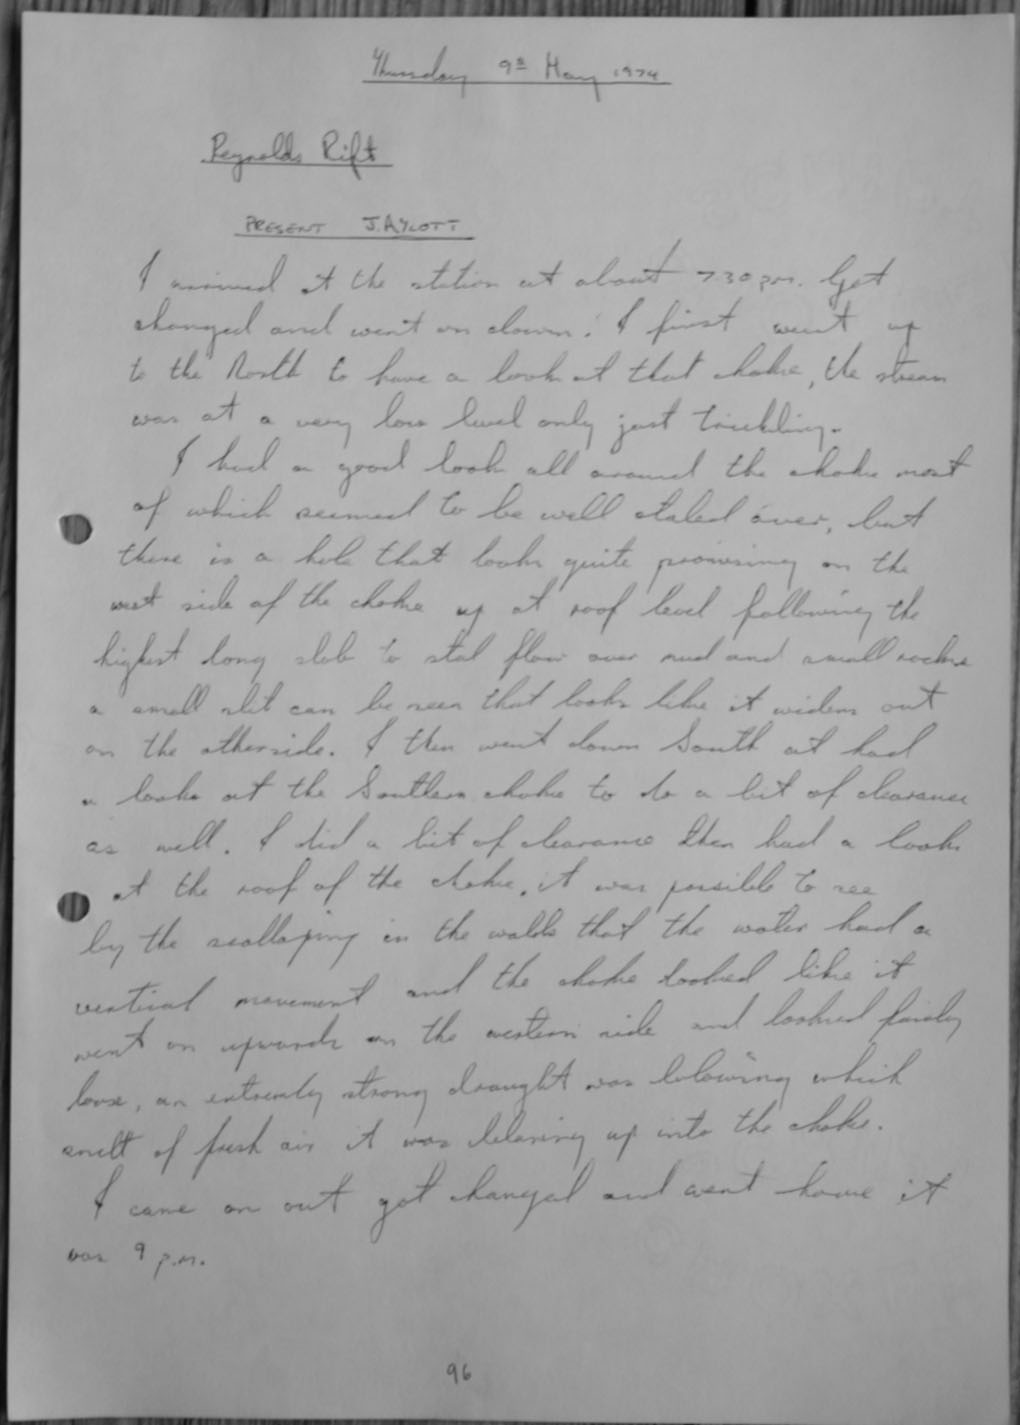 Thursday 9th May 1974
Reynolds Rift
PRESENT J. AYLOTT
I arrived at the station at about 7 30 p.m. Got
changed and went on down. I first went up
to the North to have a look at that choke, the stream
was at a very low level only just trickling.
I had a good look all around the choke most
of which seemed to be well staled over, but
there is a hole that looks quite promising on the
west side of the choke up at roof level following the
highest long slab to stal flow over mud and small rocks
a small slit can be seen that looks like it widens out
on the otherside. I then went down South at had
a look at the Southern choke to do a bit of clearance
as well. I did a bit of clearance then had a look
at the roof of the choke, it was possible to see
by the scalloping in the walls that the water had a
vertical movement and the choke looked like it
went on upwards on the western side and looked fairly
loose, an extremly strong draught was blowing which
smelt of fresh air it was blowing up into the choke.
I came on out got changed and went home it
was 9 p.m.
96